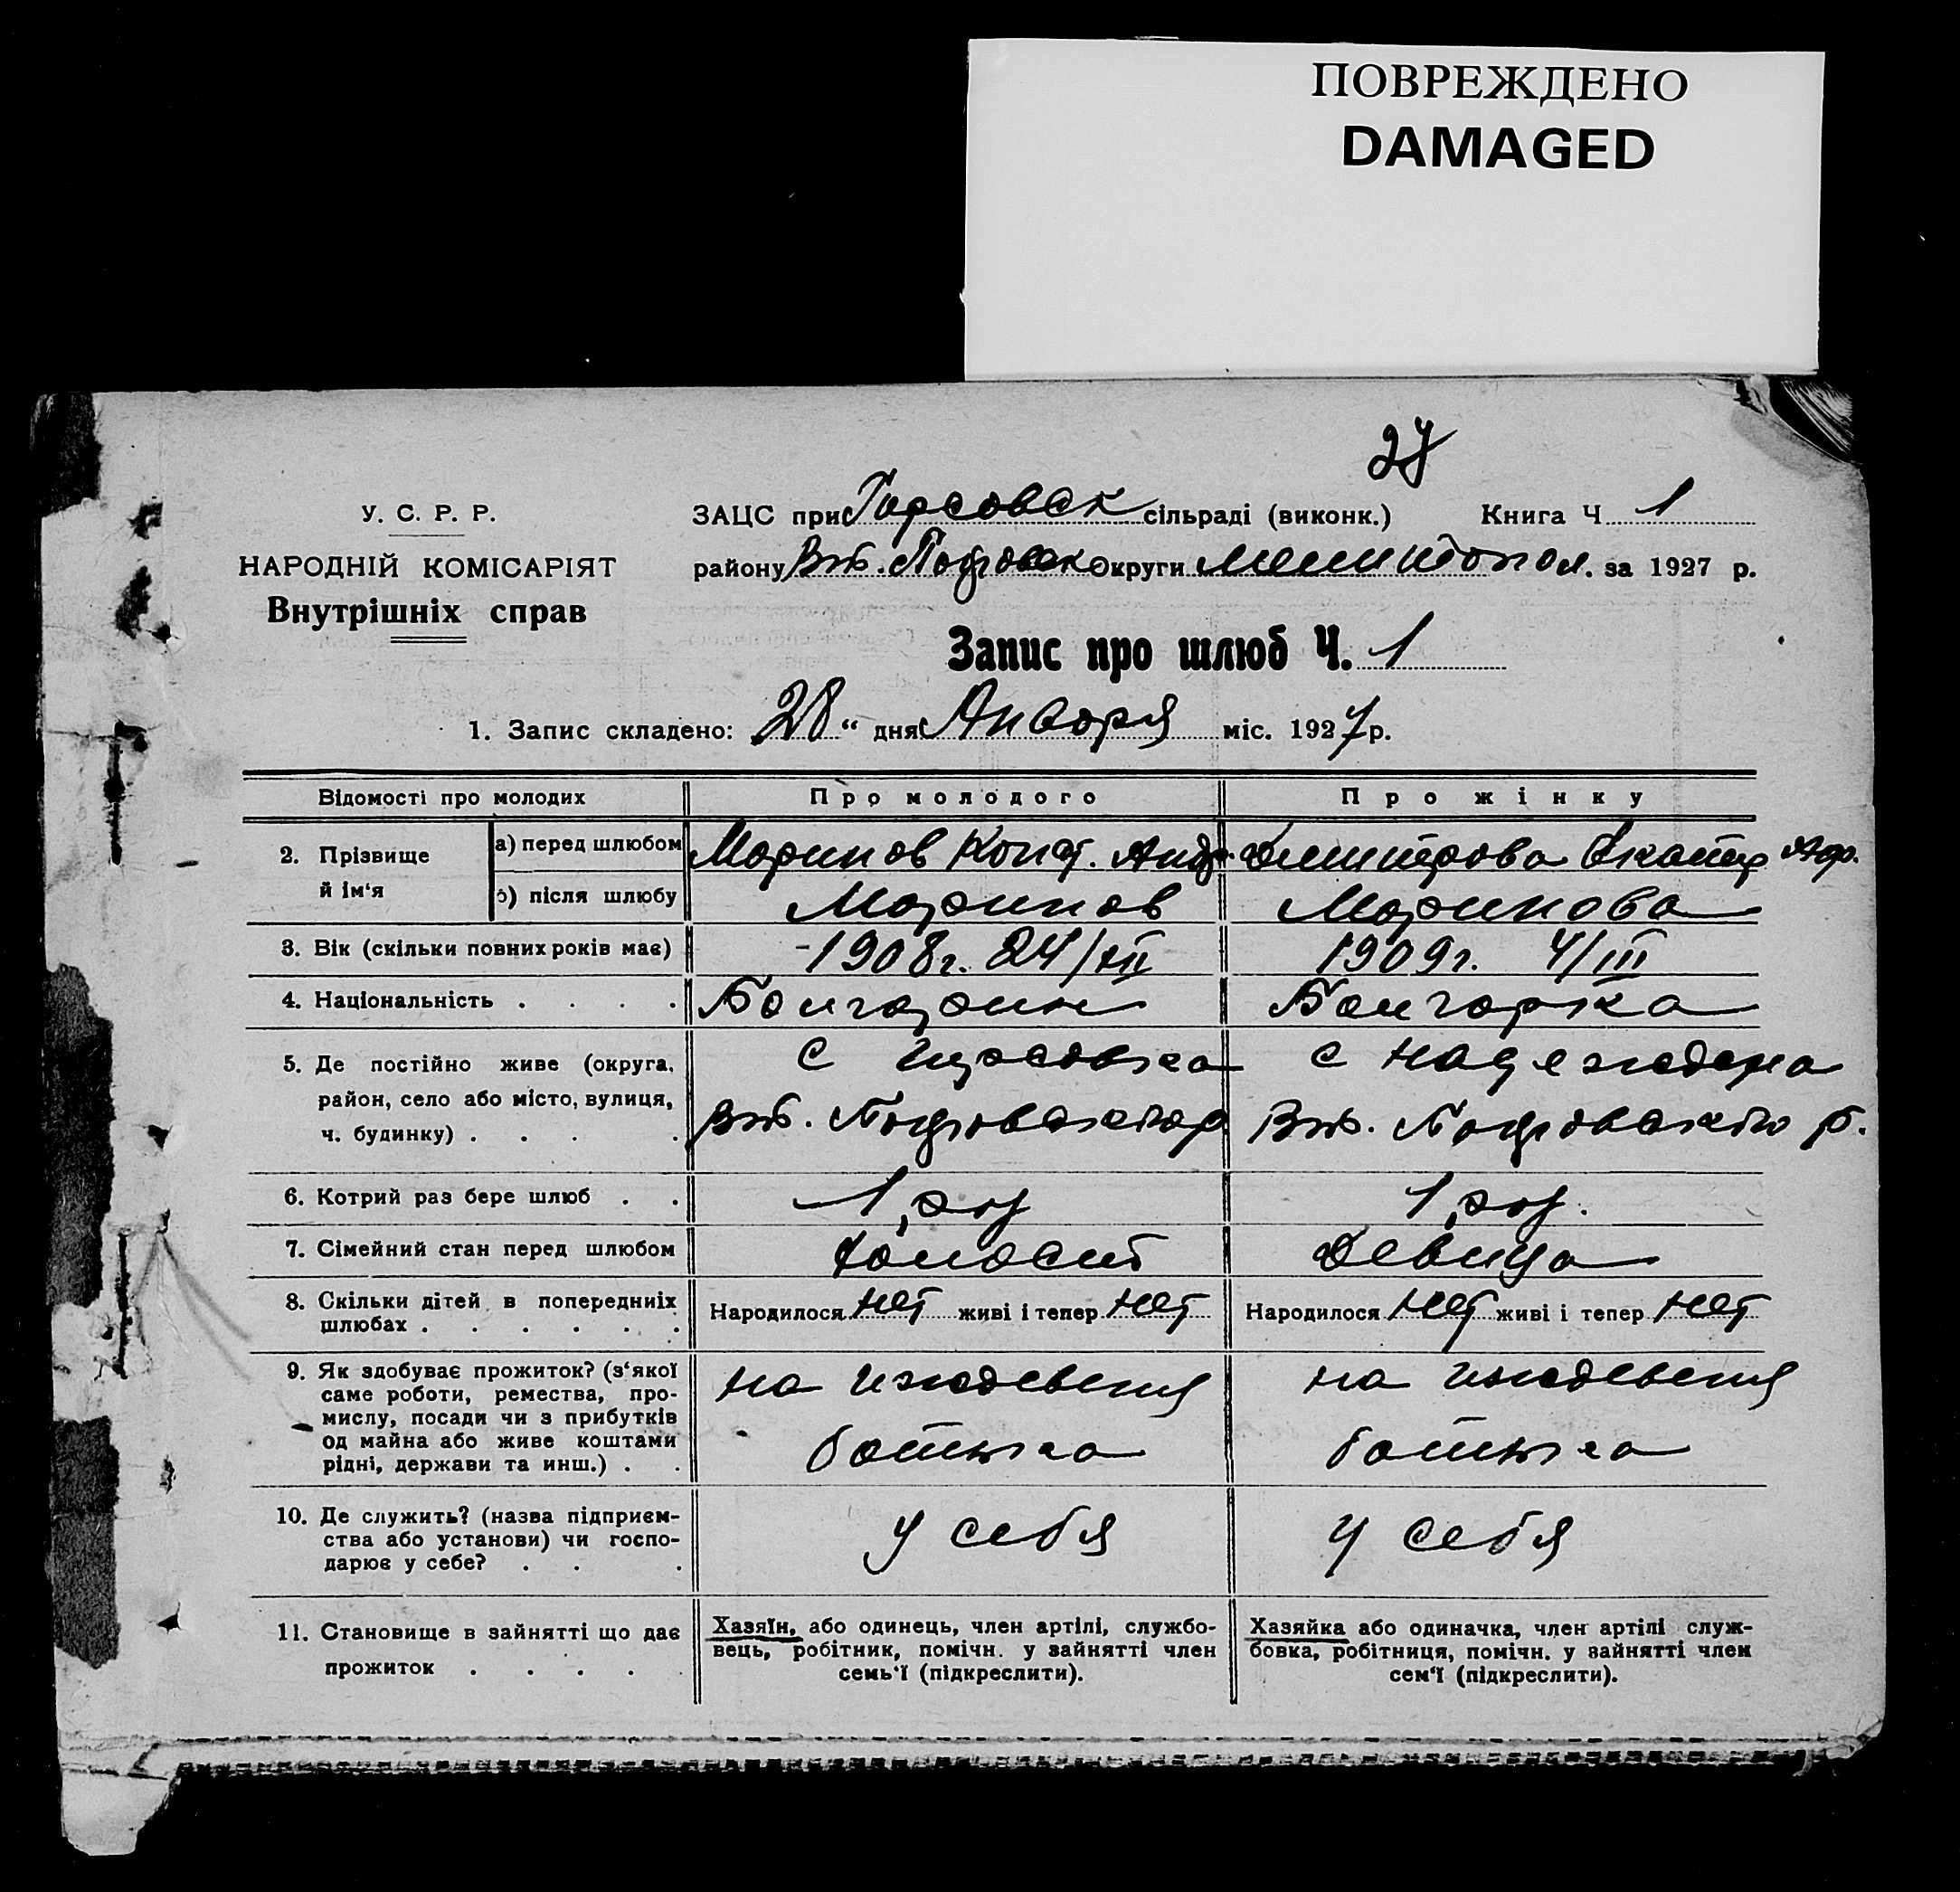 ПОВРЕЖДЕНО
DAMAGED
У. С. Р. Р.
НАРОДНІЙ КОМІСАРІЯТ
Внутрішніх справ
ЗАЦС при Гирсовск сільраді (виконк.) Книга Ч 1
району Округи Мелитопол. за 1927 р.
Запис про шлюб Ч. 1
1. Запис складено: 28 “ дня Января міс. 1927 р.
Відомості про молодих Про молодого Про жінку
2. Прізвище й ім‘я
а) перед шлюбом Маринов Конст. Анд. Димитрова Екатер
б) після шлюбу Маринов Маринова
3. Вік (скільки повних років має) 1908г. 24/XII 1909г. 4/III
4. Національність . . . . Болгарин Болгарка
5. Де постійно живе (округа, район, село або місто, вулиця, ч. будинку) . . . .
с Гирсовка с Надеждена
6. Котрий раз бере шлюб . . 1 раз 1 раз.
7. Сімейний стан перед шлюбом Холост Девица
8. Скільки дітей в попередниіх шлюбах . . . . . .
Народилося нет живі і тепер нет Народилося нет живі і тепер нет
9. Як здобуває прожиток? (з‘якої
саме роботи, ремества, про-
мислу, посади чи з прибутків
од майна або живе коштами
рідні, держави та инш.) . .
на иждевения на иждевения
батька батька
10. Де служить? (назва підприєм-
ства або установи) чи госпо-
дарює у себе? . . .
у себя у себя
11. Становище в зайнятті що дає
прожиток . . . . .
Хазяїн, або одинець, член артілі, службо-
вець, робітник, помічн. у зайнятті член
семь‘ї (підкреслити).
Хазяйка або одиначка, член артілі служ-
бовка, робітниця, помічн. у зайнятті член
сем‘ї (підкреслити).